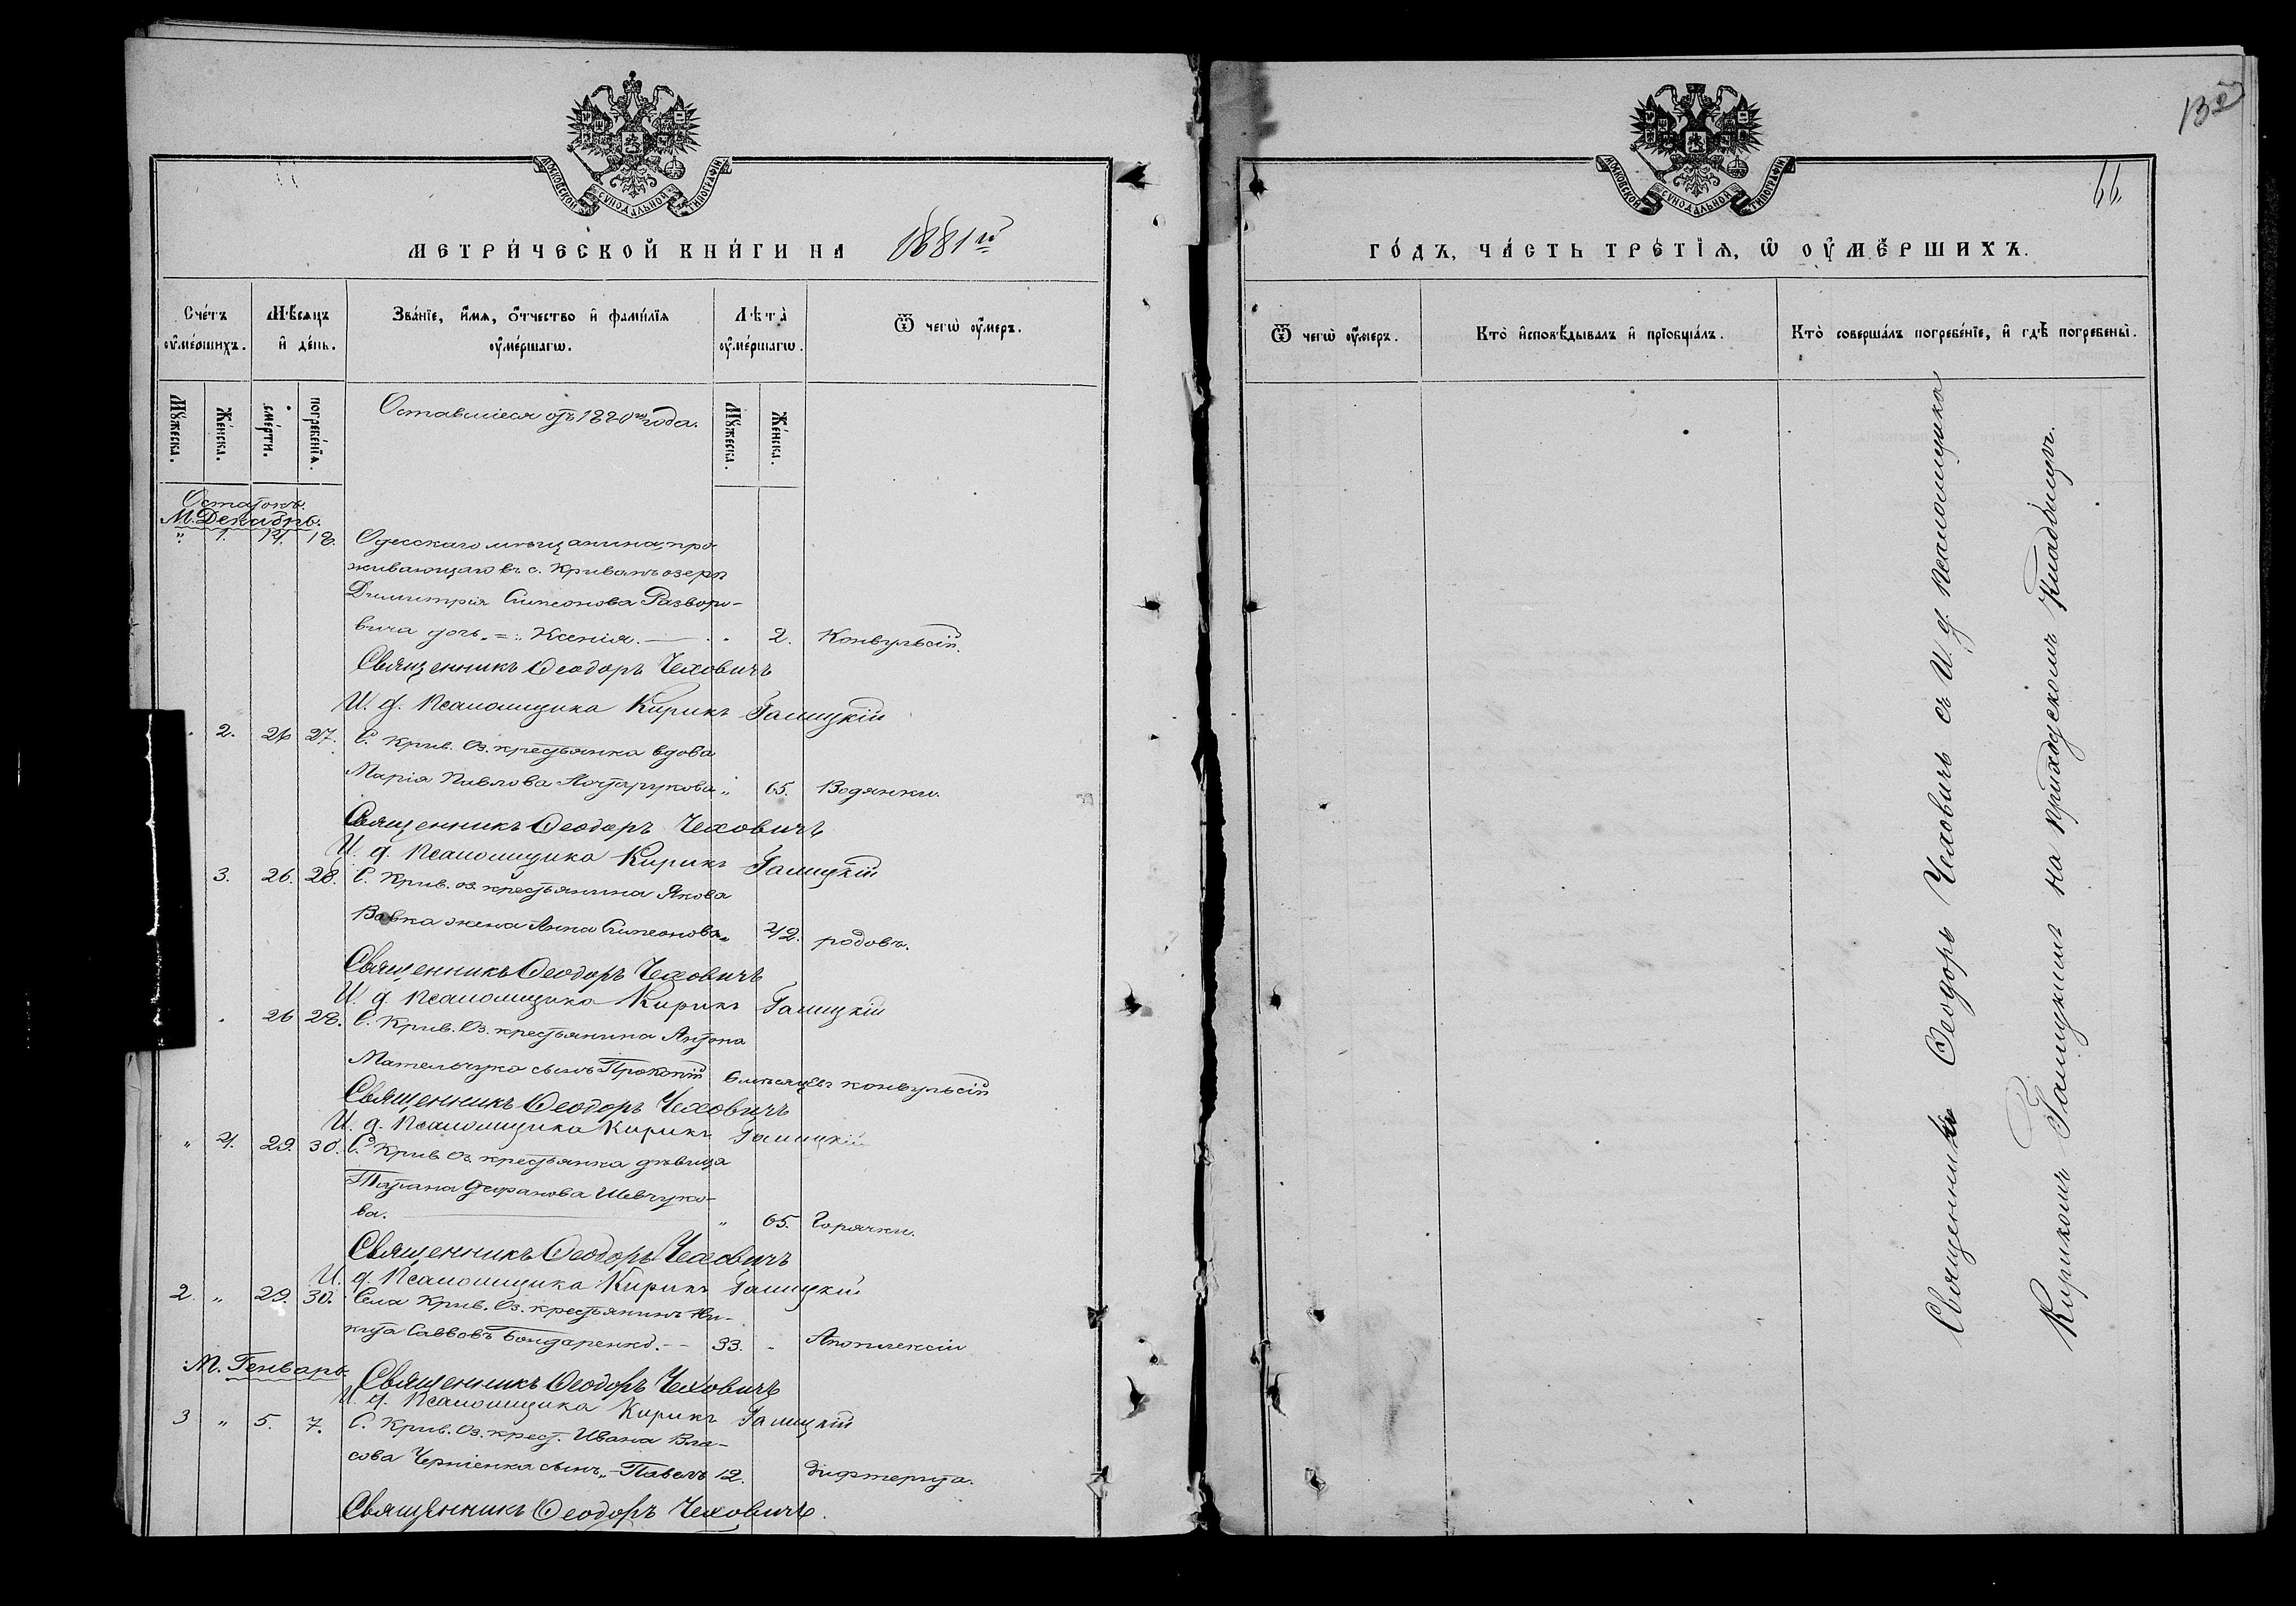 МОСКОВСКОЙ СѴНОДАЛЬНОЙ ТИПОГРАФІИ
МЕТРИ́ЧЕСКОЙ КНИ́ГИ НА 1881й
Сче́тъ ᲂу҆ме́ршихъ.
Мѣ́сяцъ и҆ де́нь.
Зва́нїе, и҆́мя, ѻ҆́тчество и҆ фами́лїя ᲂу҆ме́ршагѡ.
Лѣта̀ ᲂу҆ме́ршагѡ.
Ѿ чегѡ̀ ᲂу҆́меръ.
Мꙋ́жеска.
Же́нска.
сме́рти.
погребе́нїѧ.
Мꙋ́жеска.
Же́нска.
Оставшіеся отъ 1880го года.
Остатокъ.
М. Декабрь.
" 1. 17. 18. Одесскаго мѣщанина, про-
живающаго въ с. Кривомъ озерѣ
Димитрія Симеонова Разворо-
вича дочь = Ксенія. — 2. Конвульсіи.
Священникъ Ѳеодоръ Чеховичъ
И. д. Псаломщика Кирикъ Галицкій
2. 26 27. С. Крив. Оз. крестьянка вдова
Марія Павлова " 65. Водянки.
Священникъ Ѳеодоръ Чеховичъ
И. д. Псаломщика Кирикъ Галицкій
3. 26. 28. С. Крив. оз. крестьянина Якова
Вовка жена Анна Симеонова " 42. родовъ.
Священникъ Ѳеодоръ Чеховичъ
И. д. Псаломщика Кирикъ Галицкій
26 28. С. Крив. Оз. крестьянина Антона
Мательчука сынъ Прокопій 6 мѣсяцевъ конвульсіи
Священникъ Ѳеодоръ Чеховичъ
И. д. Псаломщика Кирикъ Галицкій
" 4. 29. 30. С. Крив. Оз. крестьянка дѣвица
Татіана Шевчуко-
ва. " 65. Горячки.
Священникъ Ѳеодоръ Чеховичъ
И. д. Псаломщика Кирикъ Галицкій
2. " 29. 30. Села Крив. Оз. крестьянинъ Ни-
кита Саввовъ Бондаренко. -- 33. Апоплексіи
М. Генварь.
Священникъ Ѳеодоръ Чеховичъ
И. д. Псаломщика Кирикъ Галицкій
3 " 5. 7. С. Крив. Оз. крест. Ивана Вла-
сова Черніенка сынъ - Павелъ 12. Дифтерита.
Священникъ Ѳеодоръ Чеховичъ.
66
МОСКОВСКОЙ СѴНОДАЛЬНОЙ ТИПОГРАФІИ
ГО́ДЪ, ЧА́СТЬ ТРЕ́ТЇѦ, Ѡ҆ ОУ҆МЕ́РШИХЪ.
Ѿ чегѡ̀ ᲂу҆́меръ.
Кто̀ и҆сповѣ́дывалъ и҆ прїобща́лъ.
Кто̀ соверша́лъ погребе́нїе, и҆ гдѣ̀ погребены̀.
Священникъ Ѳеодоръ Чеховичъ съ И. д. Псаломщика
Кирикомъ Галицкимъ на приходскомъ Кладбищѣ.